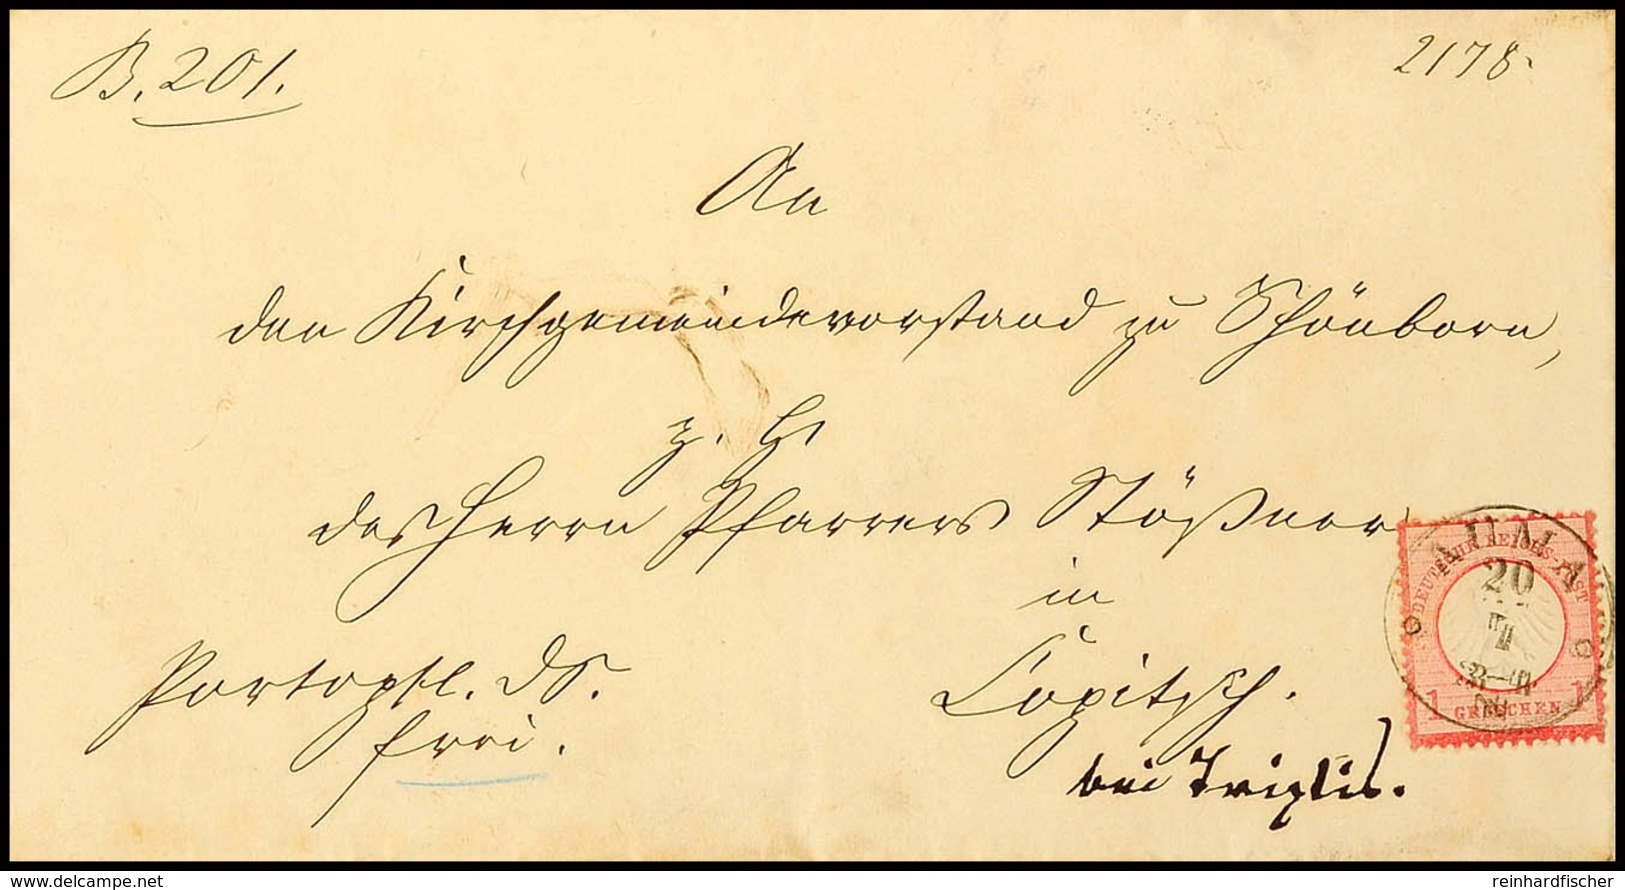 B. 201.
2178.
An
den Kirchgemeindevorstand zu Schönborn,
z. H.
des Herrn Pfarrers Stößner
in
Copitzsch.
bei Triptis.
Portopfl. DS.
frei.
AUMA
20
DEUTSCHE REICHS-POST
1 GROSCHEN 1
delcampe.net
reinhardfischer